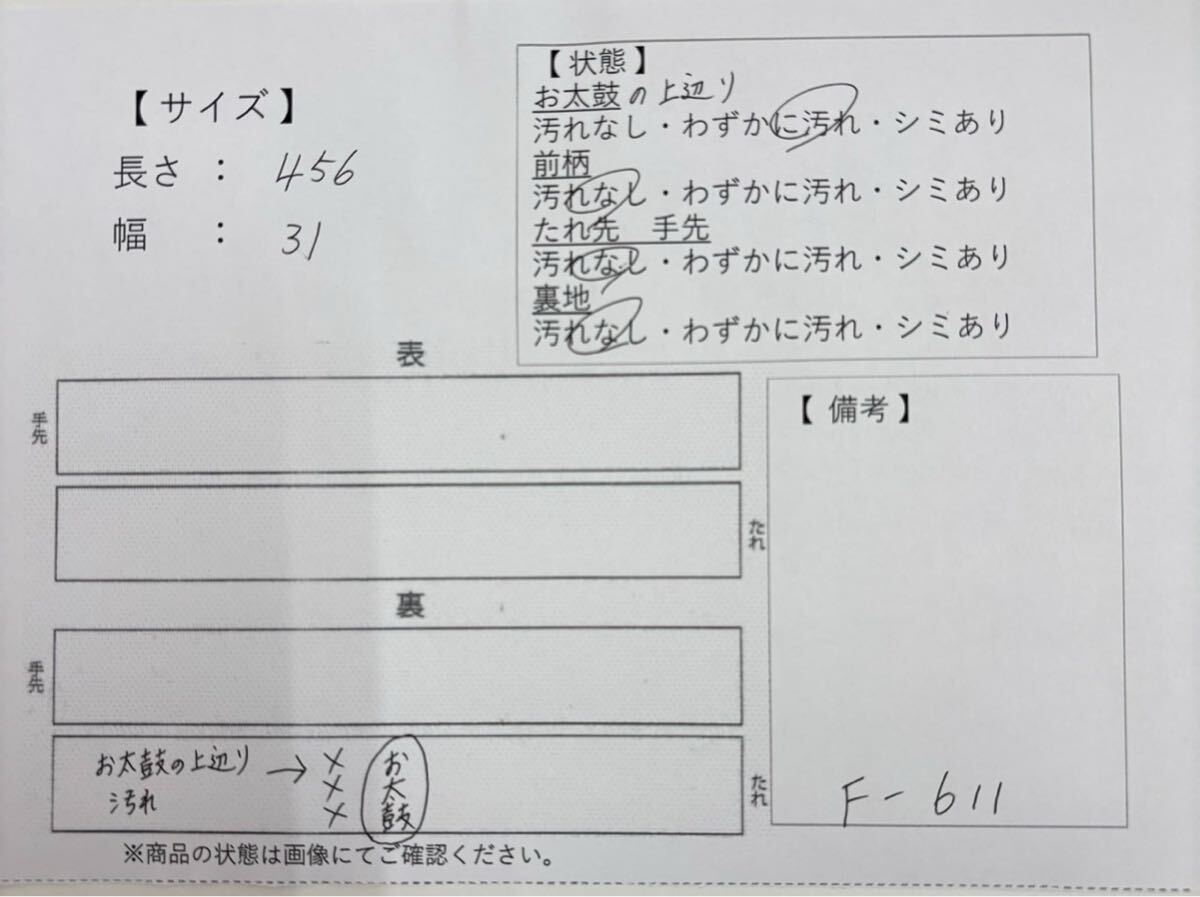 【 サイズ 】
長さ ： 456
幅 ： 31
【 状態 】
お太鼓の上辺り
汚れなし・わずかに汚れ・シミあり
前柄
汚れなし・わずかに汚れ・シミあり
たれ先 手先
汚れなし・わずかに汚れ・シミあり
裏地
汚れなし・わずかに汚れ・シミあり
表
手先
たれ
裏
手先
お太鼓の上辺り → × お
汚れ × 太
× 鼓
たれ
【 備考 】
F-611
※商品の状態は画像にてご確認ください。